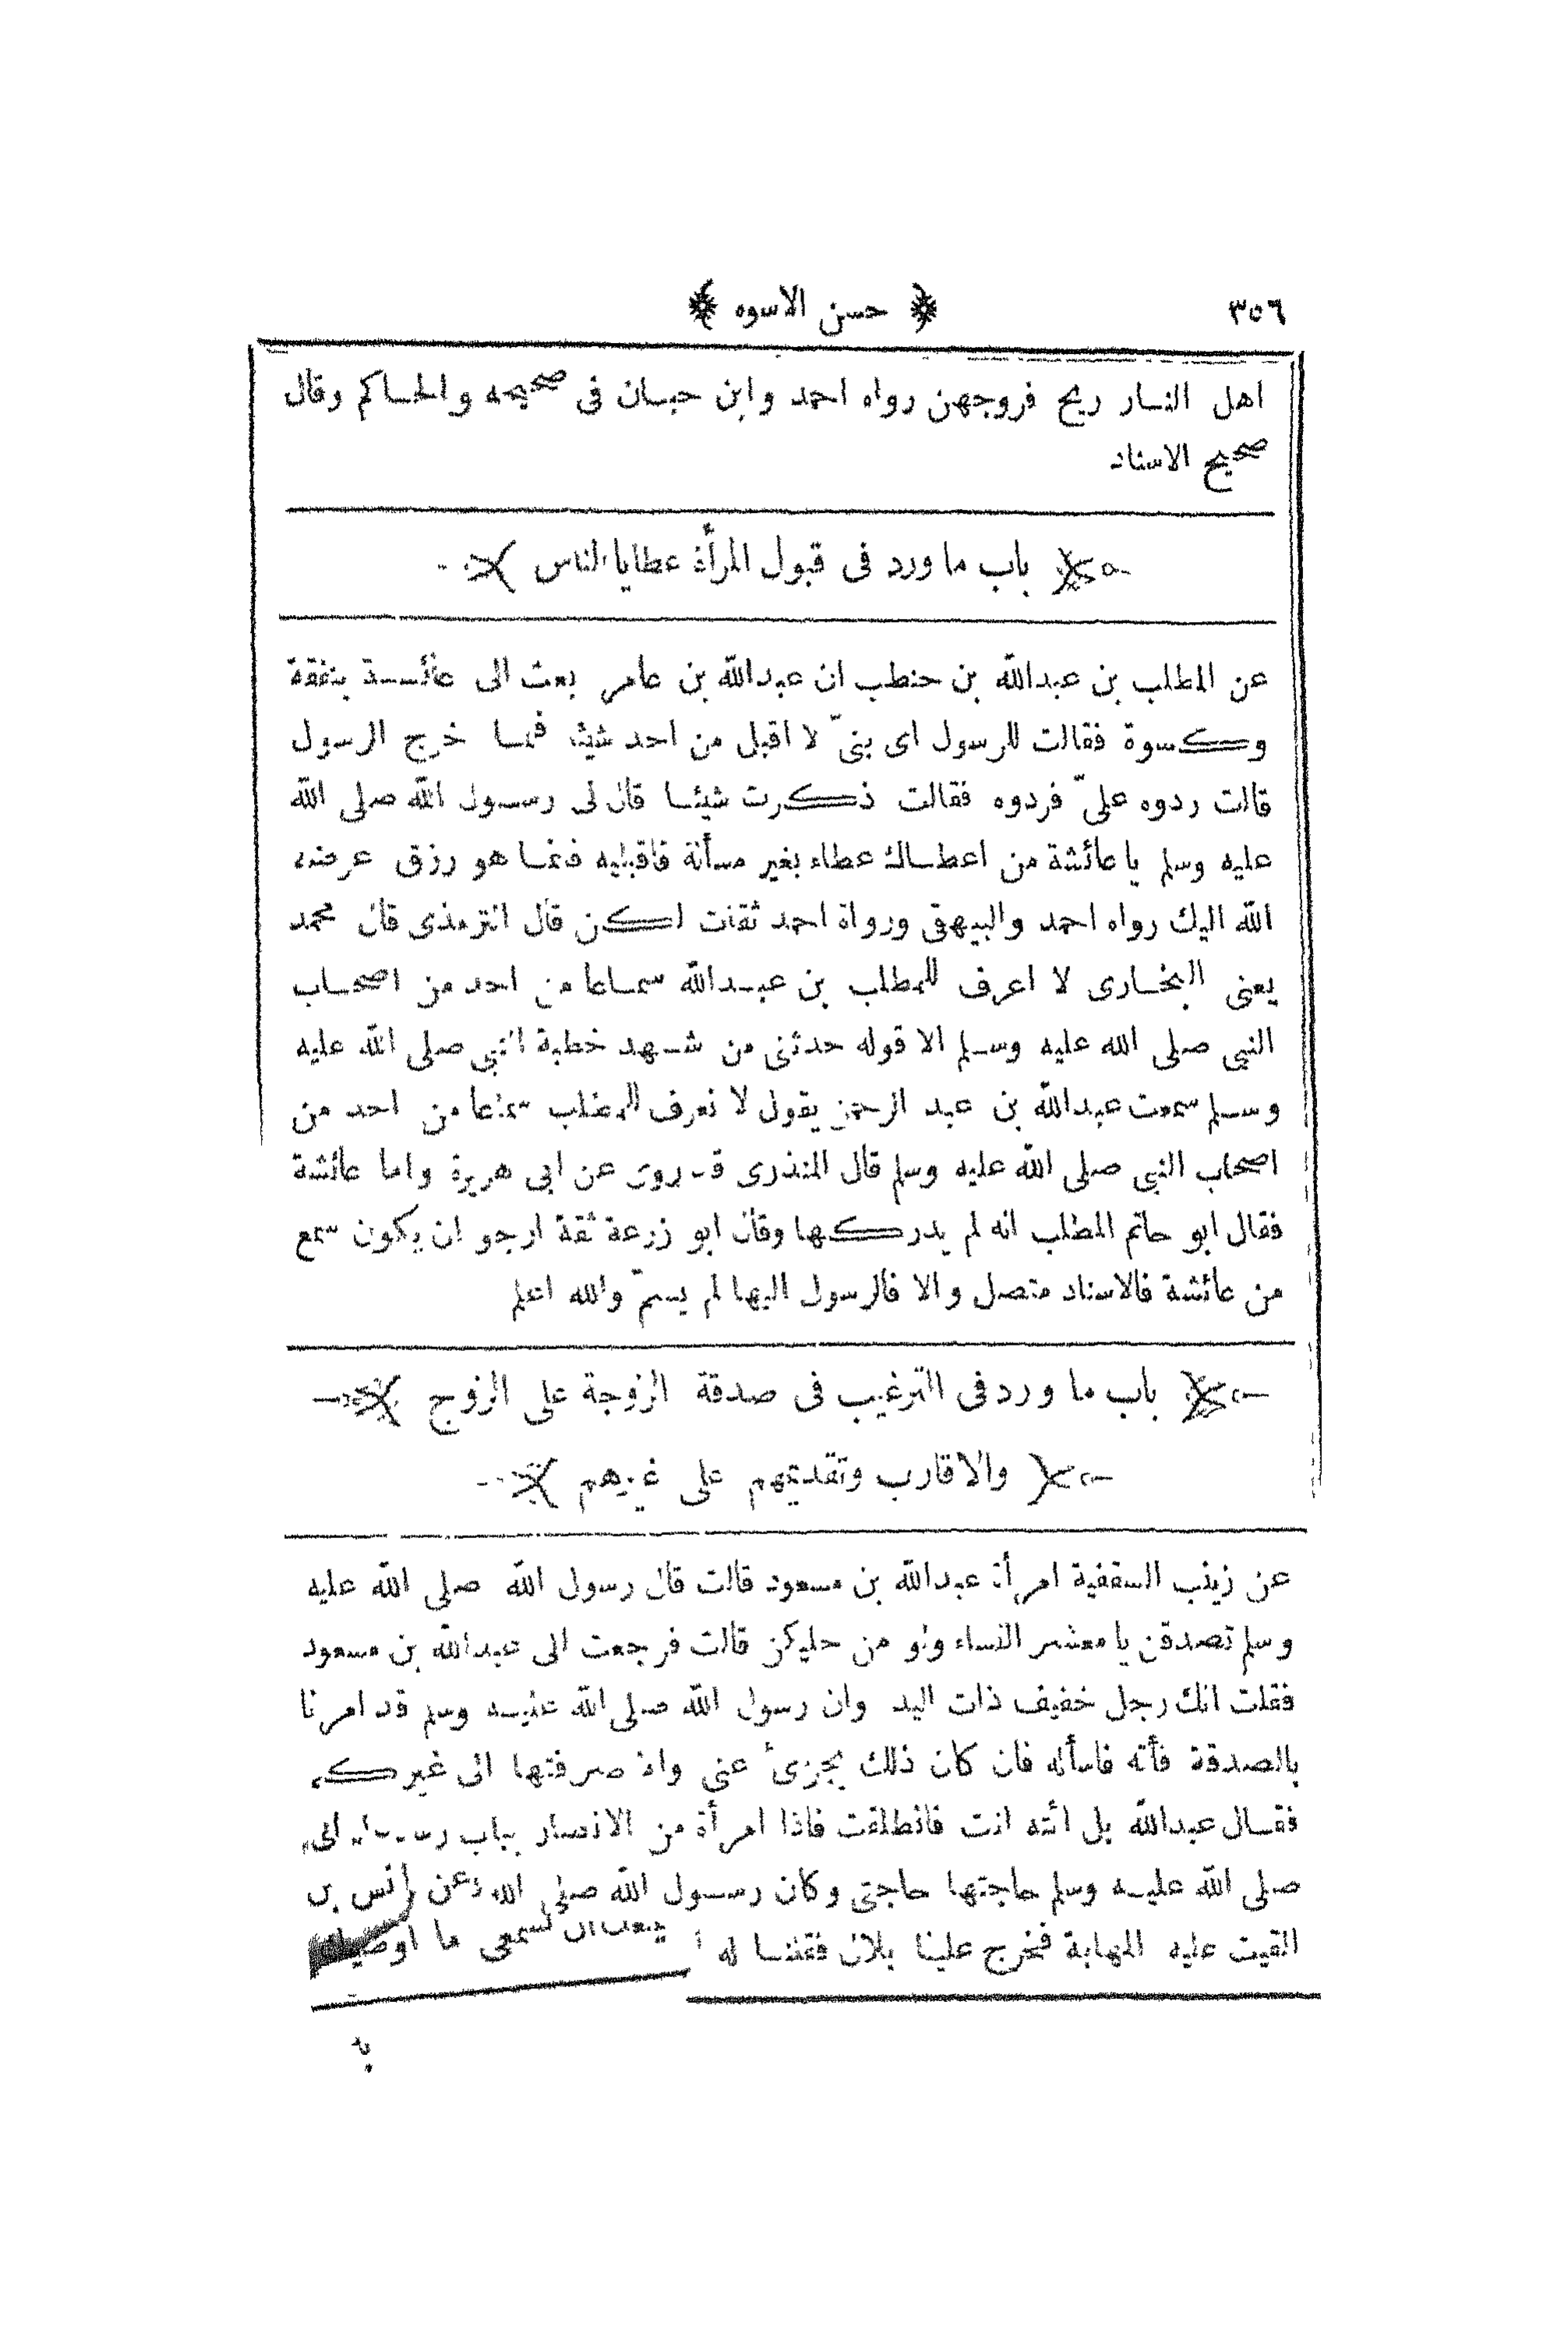 ٣٥٦ ﴿ حسن الاسوه ﴾
اهل النسار ريح فروجهن رواه احمد وابن حبان فى صحيحه والحاكم وقال
صحيح الاسناد
باب ما ورد فى قبول المرأة عطايا الناس
عن المطلب بن عبدالله بن حنطب ان عبدالله بن عامر بعث الى عائشة بنفقة
وكسوة فقالت للرسول اى بنىّ لا اقبل من احد شيئا فلما خرج الرسول
قالت ردوه علىّ فردوه فقالت ذكرت شيئا قال لى رسول الله صلى الله
عليه وسلم يا عائشة من اعطاك عطاء بغير مسألة فاقبليه فانما هو رزق عرضه
الله اليك رواه احمد والبيهقى ورواة احمد ثقات لكن قال الترمذى قال محمد
يعنى البخارى لا اعرف للمطلب بن عبدالله سماعا من احد من اصحاب
النبى صلى الله عليه وسلم الا قوله حدثنى من شهد خطبة النبى صلى الله عليه
وسلم سمعت عبدالله بن عبد الرحمن يقول لا نعرف للمطلب سماعا من احد من
اصحاب النبى صلى الله عليه وسلم قال المنذرى قد روى عن ابى هريرة واما عائشة
فقال ابو حاتم المطلب انه لم يدركها وقال ابو زرعة ثقة ارجو ان يكون سمع
من عائشة فالاسناد متصل والا فالرسول اليها لم يسمّ والله اعلم
باب ما ورد فى الترغيب فى صدقة الزوجة على الزوج
والاقارب وتقديمهم على غيرهم
عن زينب السقفية امرأة عبدالله بن مسعود قالت قال رسول الله صلى الله عليه
وسلم تصدقن يا معشر النساء ولو من حليكن قالت فرجعت الى عبدالله بن مسعود
فقلت انك رجل خفيف ذات اليد وان رسول الله صلى الله عليه وسلم قد امرنا
بالصدقة فأته فاسأله فان كان ذلك يجزئ عنى والا صرفتها الى غيركم
فقال عبدالله بل ائته انت فانطلقت فاذا امرأة من الانصار بباب
صلى الله عليه وسلم حاجتها حاجتى وكان رسول الله صلى الله وعن انس بن
القيت عليه المهابة فخرج علينا بلال فقلنا له تسمعى ما اوصيك